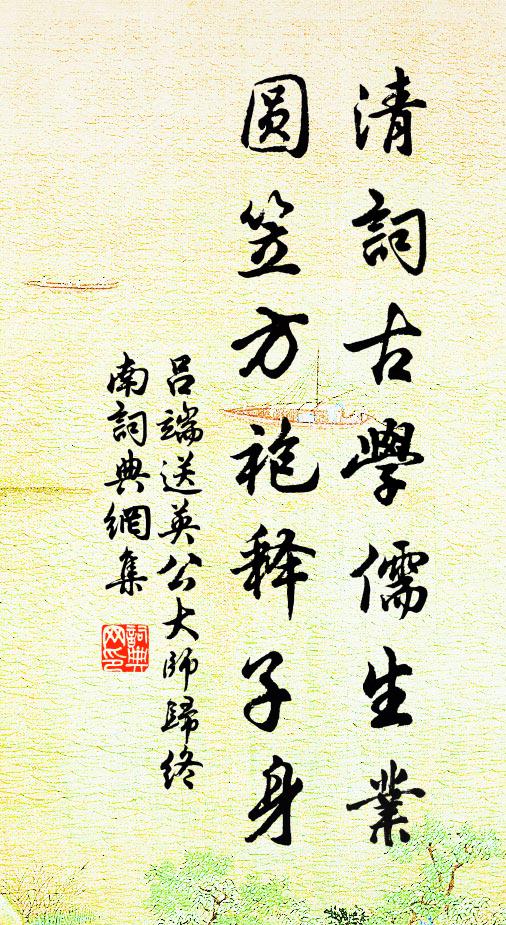 清詞古學儒生業
圆笠方袍釋子身
吕端送英公大師歸終
南詞典網集
詞典网印